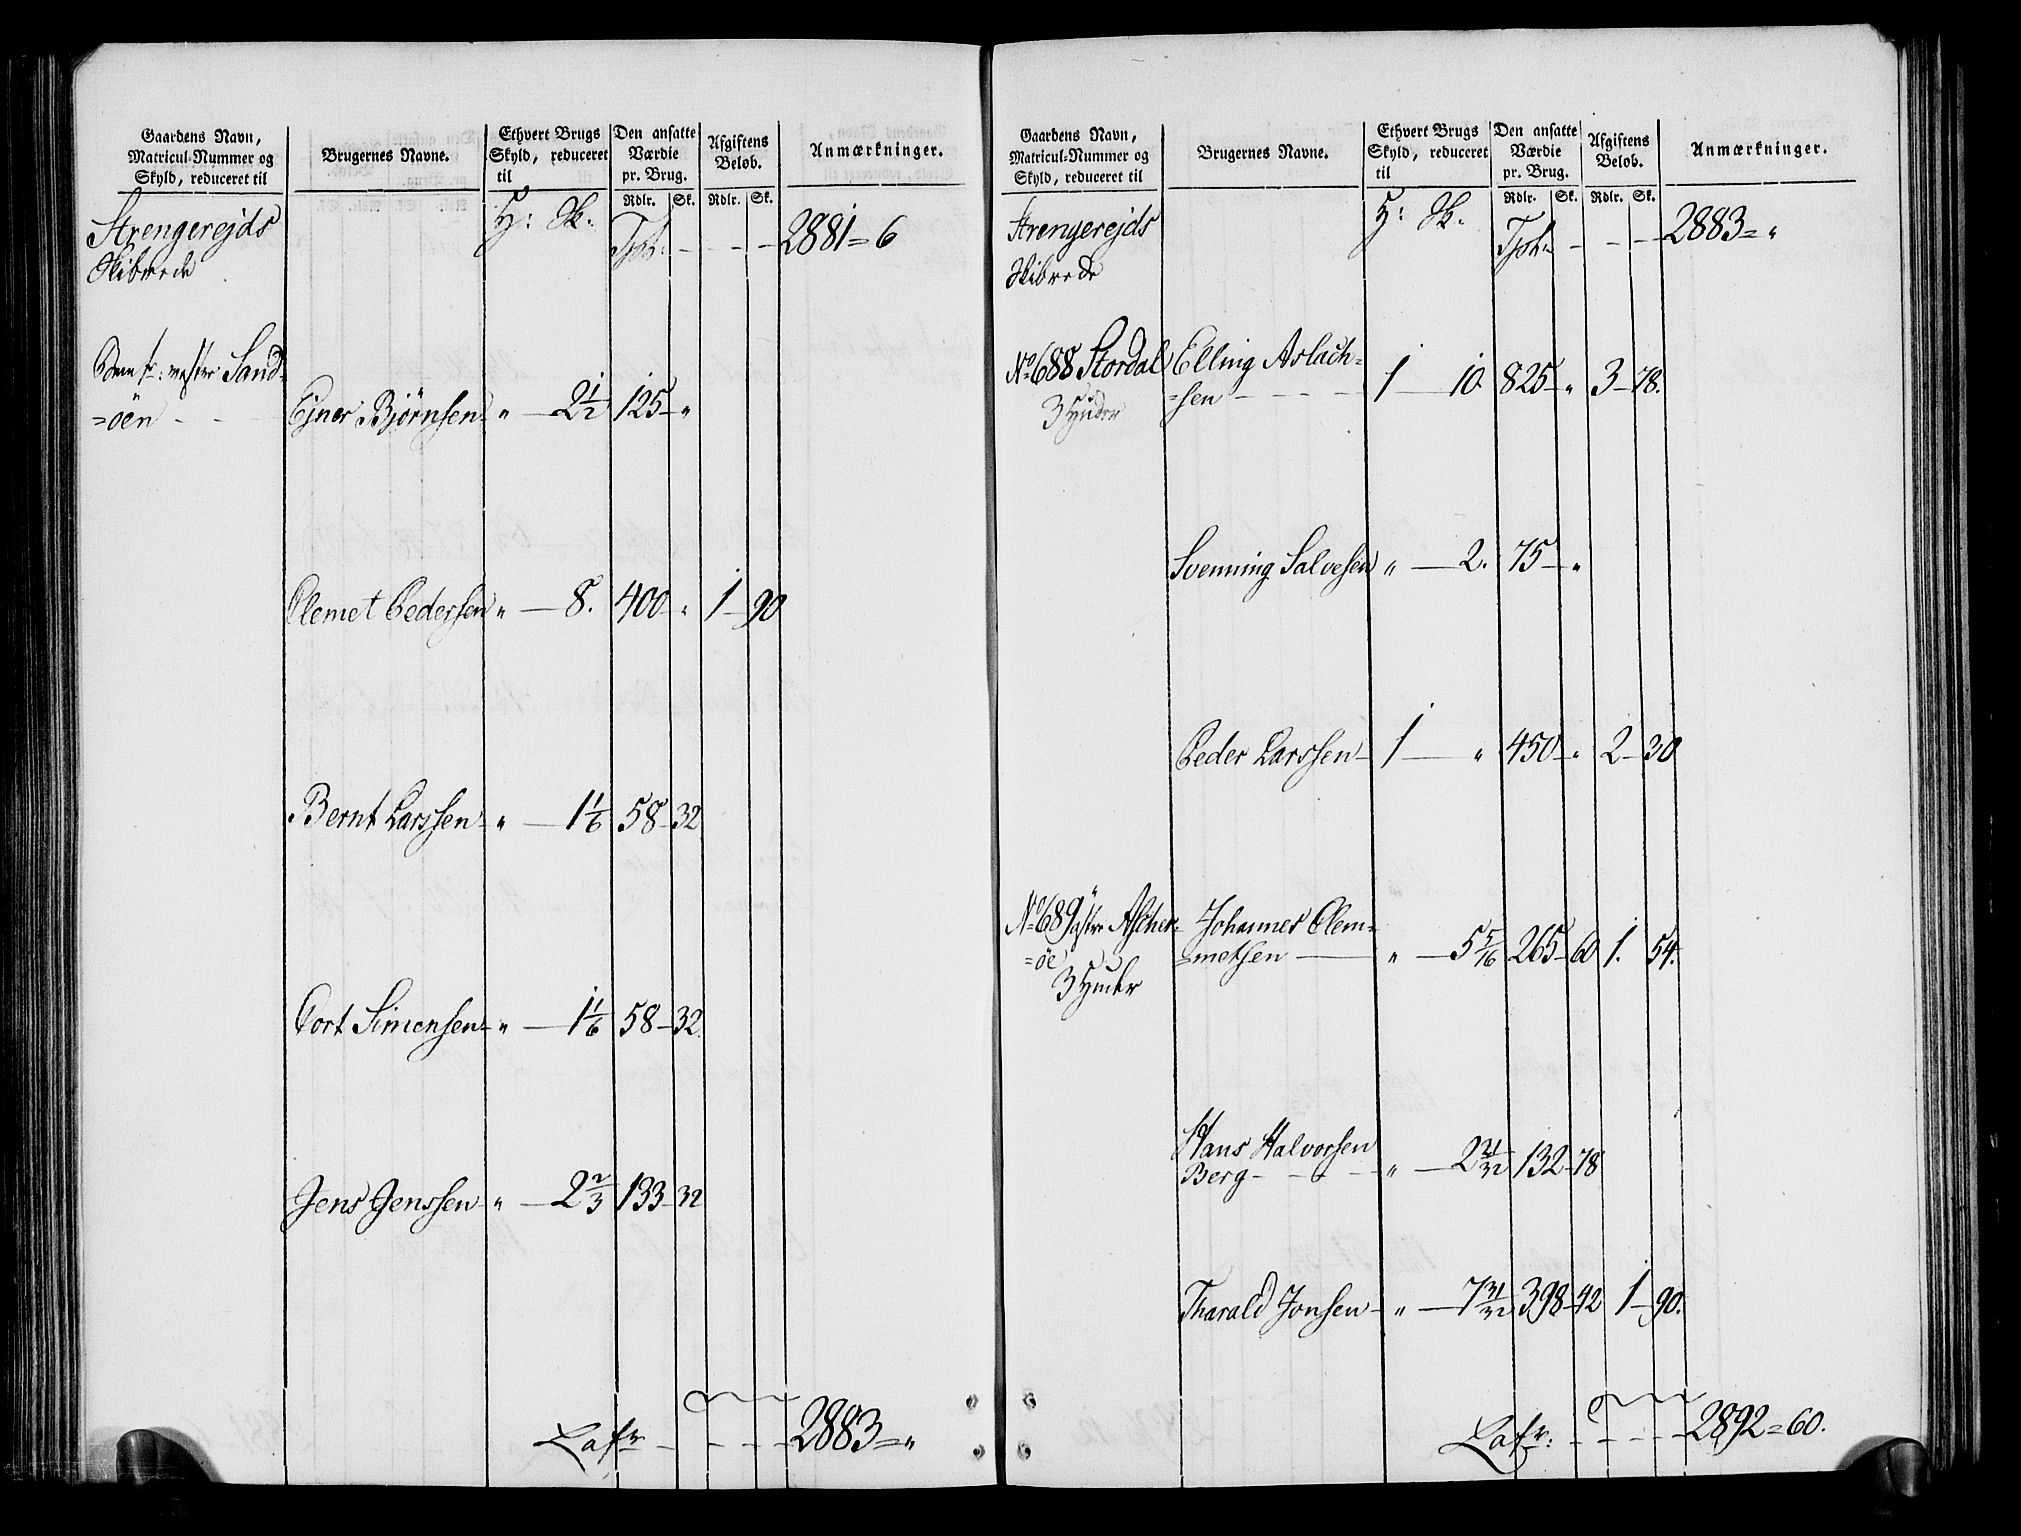 Gaardens Navn,
Matricul-Nummer og
Skyld, reduceret til
Brugernes Navne.
Ethvert Brugs
Skyld, reduceret
til
Den ansatte
Værdie
pr. Brug.
Rdlr. Sk.
Afgiftens
Beløb.
Rdlr. Sk.
Anmærkninger.
Strengerejds
Skibrede
H: Sk.
Tpt: - - - 2881=6
vester Sand-
=öen - -
Ejner Björnsen - " - 2 1/2 125 - "
Clemet Pedersen " - 8. 400 - " 1 - 90
Bernt Larssen - " - 1 1/6 58 - 32
Cort Simensen - " - 1 1/6 58 - 32.
Jens Jenssen - " - 2 2/3 133 - 32
Lat - - - - 2883="
Gaardens Navn,
Matricul-Nummer og
Skyld, reduceret til
Brugernes Navne.
Ethvert Brugs
Skyld, reduceret
til
Den ansatte
Værdie
pr. Brug.
Rdlr. Sk.
Afgiftens
Beløb.
Rdlr. Sk.
Anmærkninger.
Strengerejds
Skibrede
H: Sk.
Tpt: - - - 2883="
No 688 Stordal
3 Hynder
Elling Aslach=
=sen - - - - 1 - 10. 825 - " 3 - 78.
Svenning Salvesen " - 2. 75 - "
Peder Larssen - 1 - " 450 - " 2 - 30
No 689 östre Ascher=
=öe
3 Hynder
Johannes Clem=
=metsen - " - 5 5/16 265 - 60 1. 54.
Hans Halvorsen
Berg - - - " - 2 21/32 132 - 78
Tharald Jonsen - " - 7 31/32 398 - 42 1 - 90.
Lat: - - - - 2892=60.